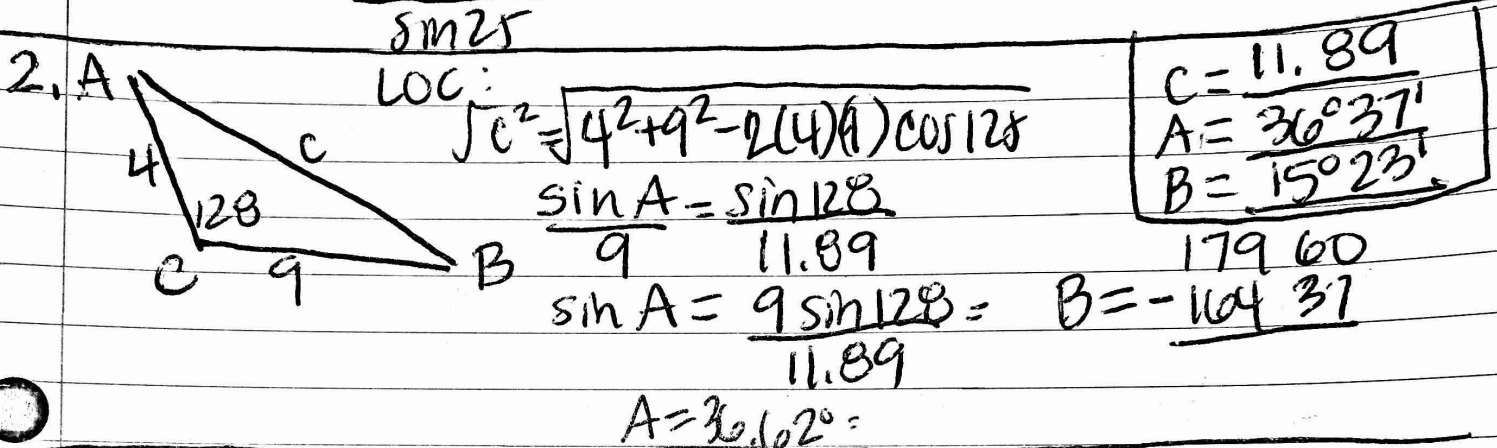 sin25
2. A
LOC:
√c² = √4²+9²-2(4)(9)cos128
4
c
128
C 9 B
sin A = sin128
9 11.89
sin A = 9 sin128 =
11.89
A = 36.62° =
C = 11.89
A = 36°37'
B = 15°23'
179 60
B = - 164 37